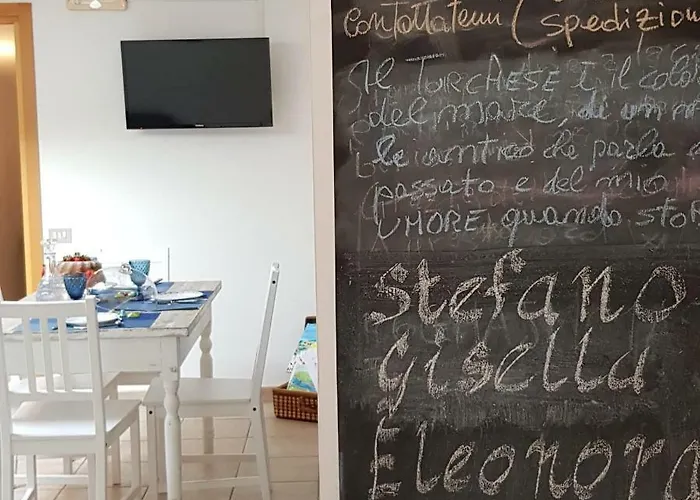 contattatemi (spedizion
Il TURCHESE è il colo
del mare, di un m
che parla
passato e del mio
UMORE quando sto
Stefano
Gisella
Eleonor